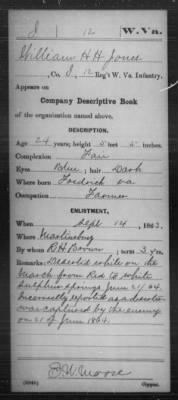 I | 12 | W. Va.
William H H Jones
, Co. I, 12 Reg't W. Va. Infantry.
Appears on
Company Descriptive Book
of the organization named above.
DESCRIPTION.
Age 24 years; height 5 feet 5 inches.
Complexion Fair
Eyes Blue; hair Dark
Where born Fredrick va
Occupation Farmer
ENLISTMENT.
When Sept 14, 1862.
Where Martinsburg
By whom R H Brown; term 3 y'rs.
Remarks: Deserted while on the
March from Red to white
Sulphur springs June 21/64.
Incorrectly reported as a deserter
was captured by the enemy
on 21 of June 1864.
B. W. Moore
Copyist.